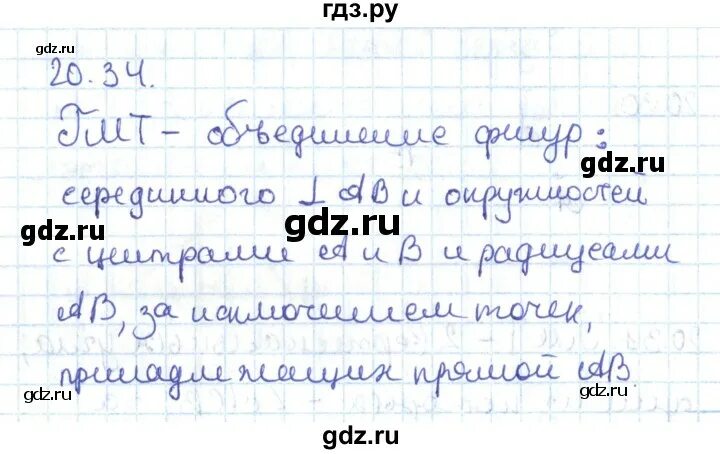 гдз.ру
gdz.ru gdz.ru
20.34.
ГМТ - объединение фигур:
gdz.ru
серединного ⊥ AB и окружностей
gdz.ru gdz.ru
с центрами A и B и радиусами
AB, за исключением точек,
принадлежащих прямой AB
gdz.ru gdz.ru
gdz.ru